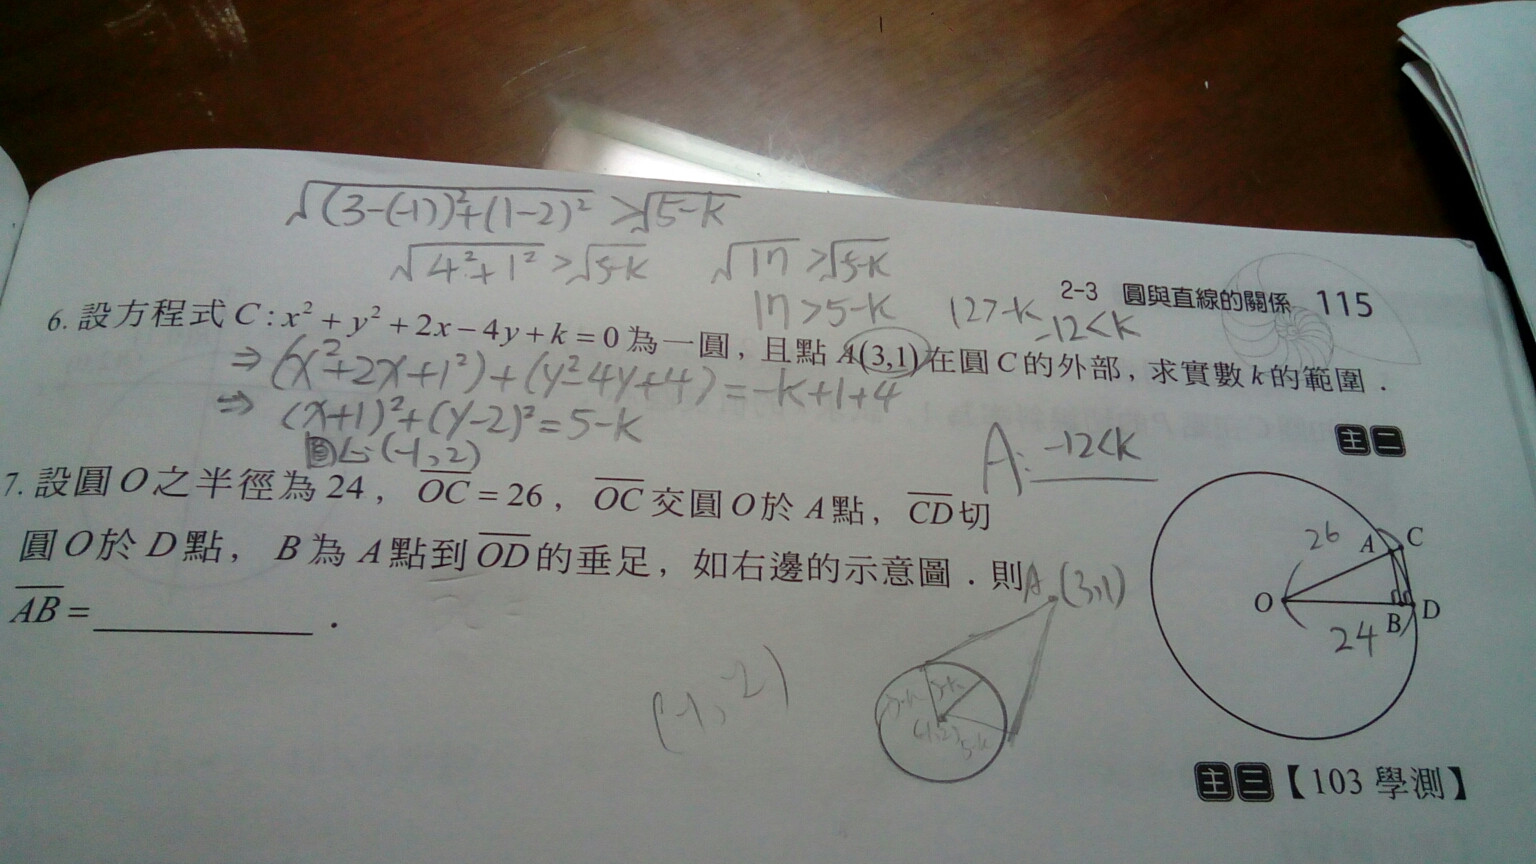 √(3-(-1))²+(1-2)² >√5-k
√4²+1² >√5-k √17 >√5-k
17 >5-k 12>-k
-12<k
2-3 圓與直線的關係 115
6. 設方程式 C : x² + y² + 2x − 4y + k = 0 為一圓，且點 A(3,1) 在圓 C 的外部，求實數 k 的範圍．
⇒ (x²+2x+1²)+(y²-4y+4)=-k+1+4
⇒ (x+1)²+(y-2)²=5-k
圓心:(-1,2)
A: -12<k
主二
7. 設圓 O 之半徑為 24，OC = 26，OC 交圓 O 於 A 點，CD 切
圓 O 於 D 點，B 為 A 點到 OD 的垂足，如右邊的示意圖．則
AB = ________ ．
26 A C
O B D
24
A (3,1)
(-1,-2)
5-k
主三【103 學測】